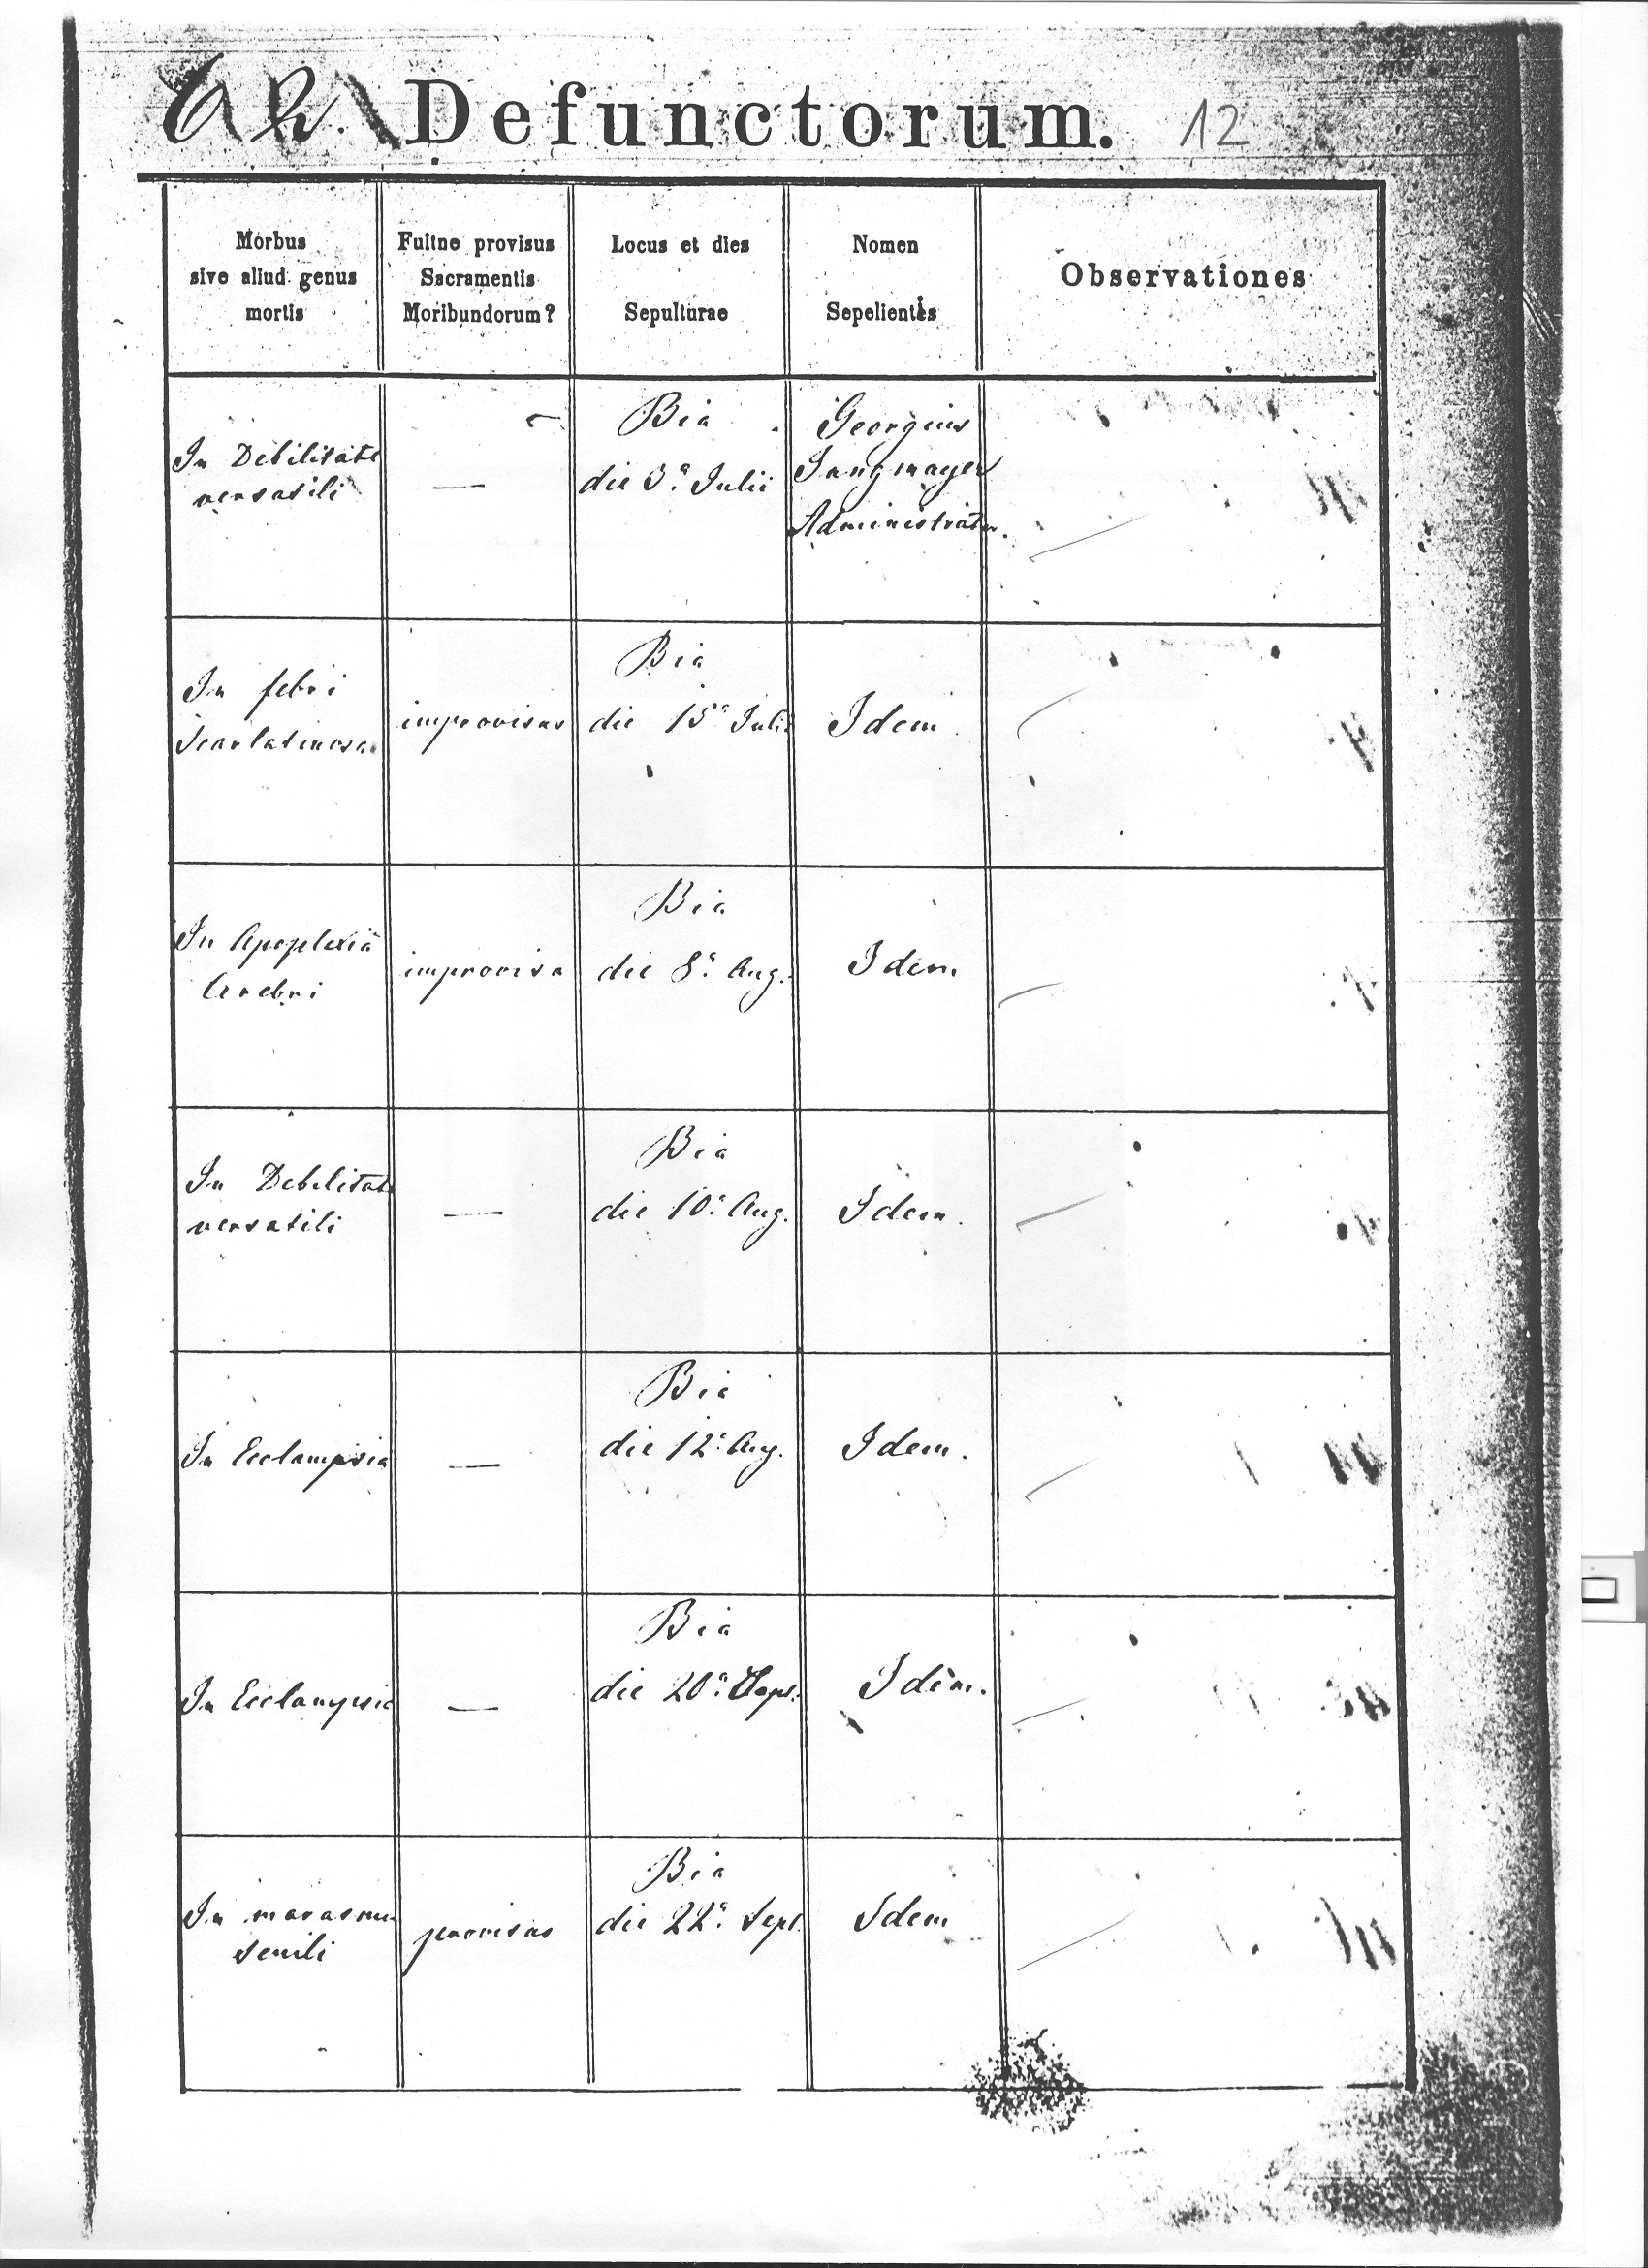 Defunctorum. 12
Morbus
sive aliud genus
mortis
Fuitne provisus
Sacramentis
Moribundorum?
Locus et dies
Sepulturae
Nomen
Sepelientis
Observationes
In Debilitate
versatili
—
Bia
die 3ª Julii
Georgius
Administrator.
In febri
scarlatinosa
improvisus
Bia
die 15ª Julii
Idem
In Apoplexia
Cerebri
improvisa
Bia
die 8ª Aug.
Idem
In Debilitate
versatili
—
Bia
die 10ª Aug.
Idem.
In Ecclampsia
—
Bia
die 12ª Aug.
Idem.
In Ecclampsia
—
Bia
die 20ª
Idem.
In marasmu
senili
provisus
Bia
die 22ª Sept.
Idem